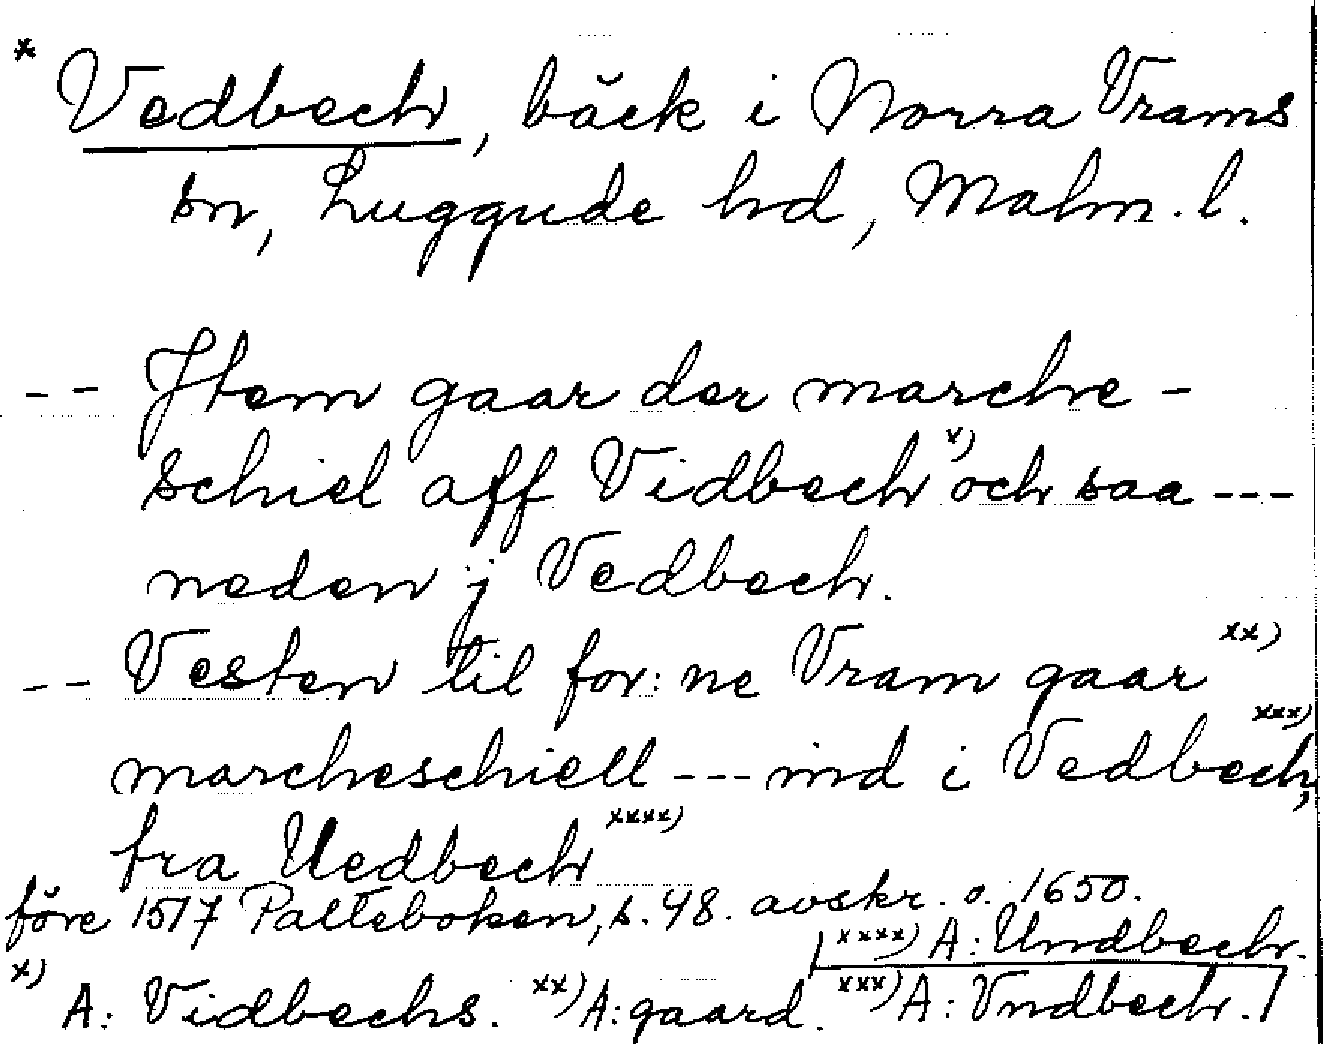 * Vedbech, bäck i Norra Vrams
sn, Luggude hd, Malm. l.
-- Jtem gaar der marche-
schiel aff Vidbech x) och saa ---
neden j Vedbech.
-- Vesten til for: ne Vram gaar xx)
marcheschiell --- ind i Vedbech, xxx)
fra Uedbech xxxx)
före 1517 Palteboken, s. 48. avskr. o. 1650.
xxxx) A: Undbech.
x) A: Vidbechs. xx) A: gaard. xxx) A: Vndbech.